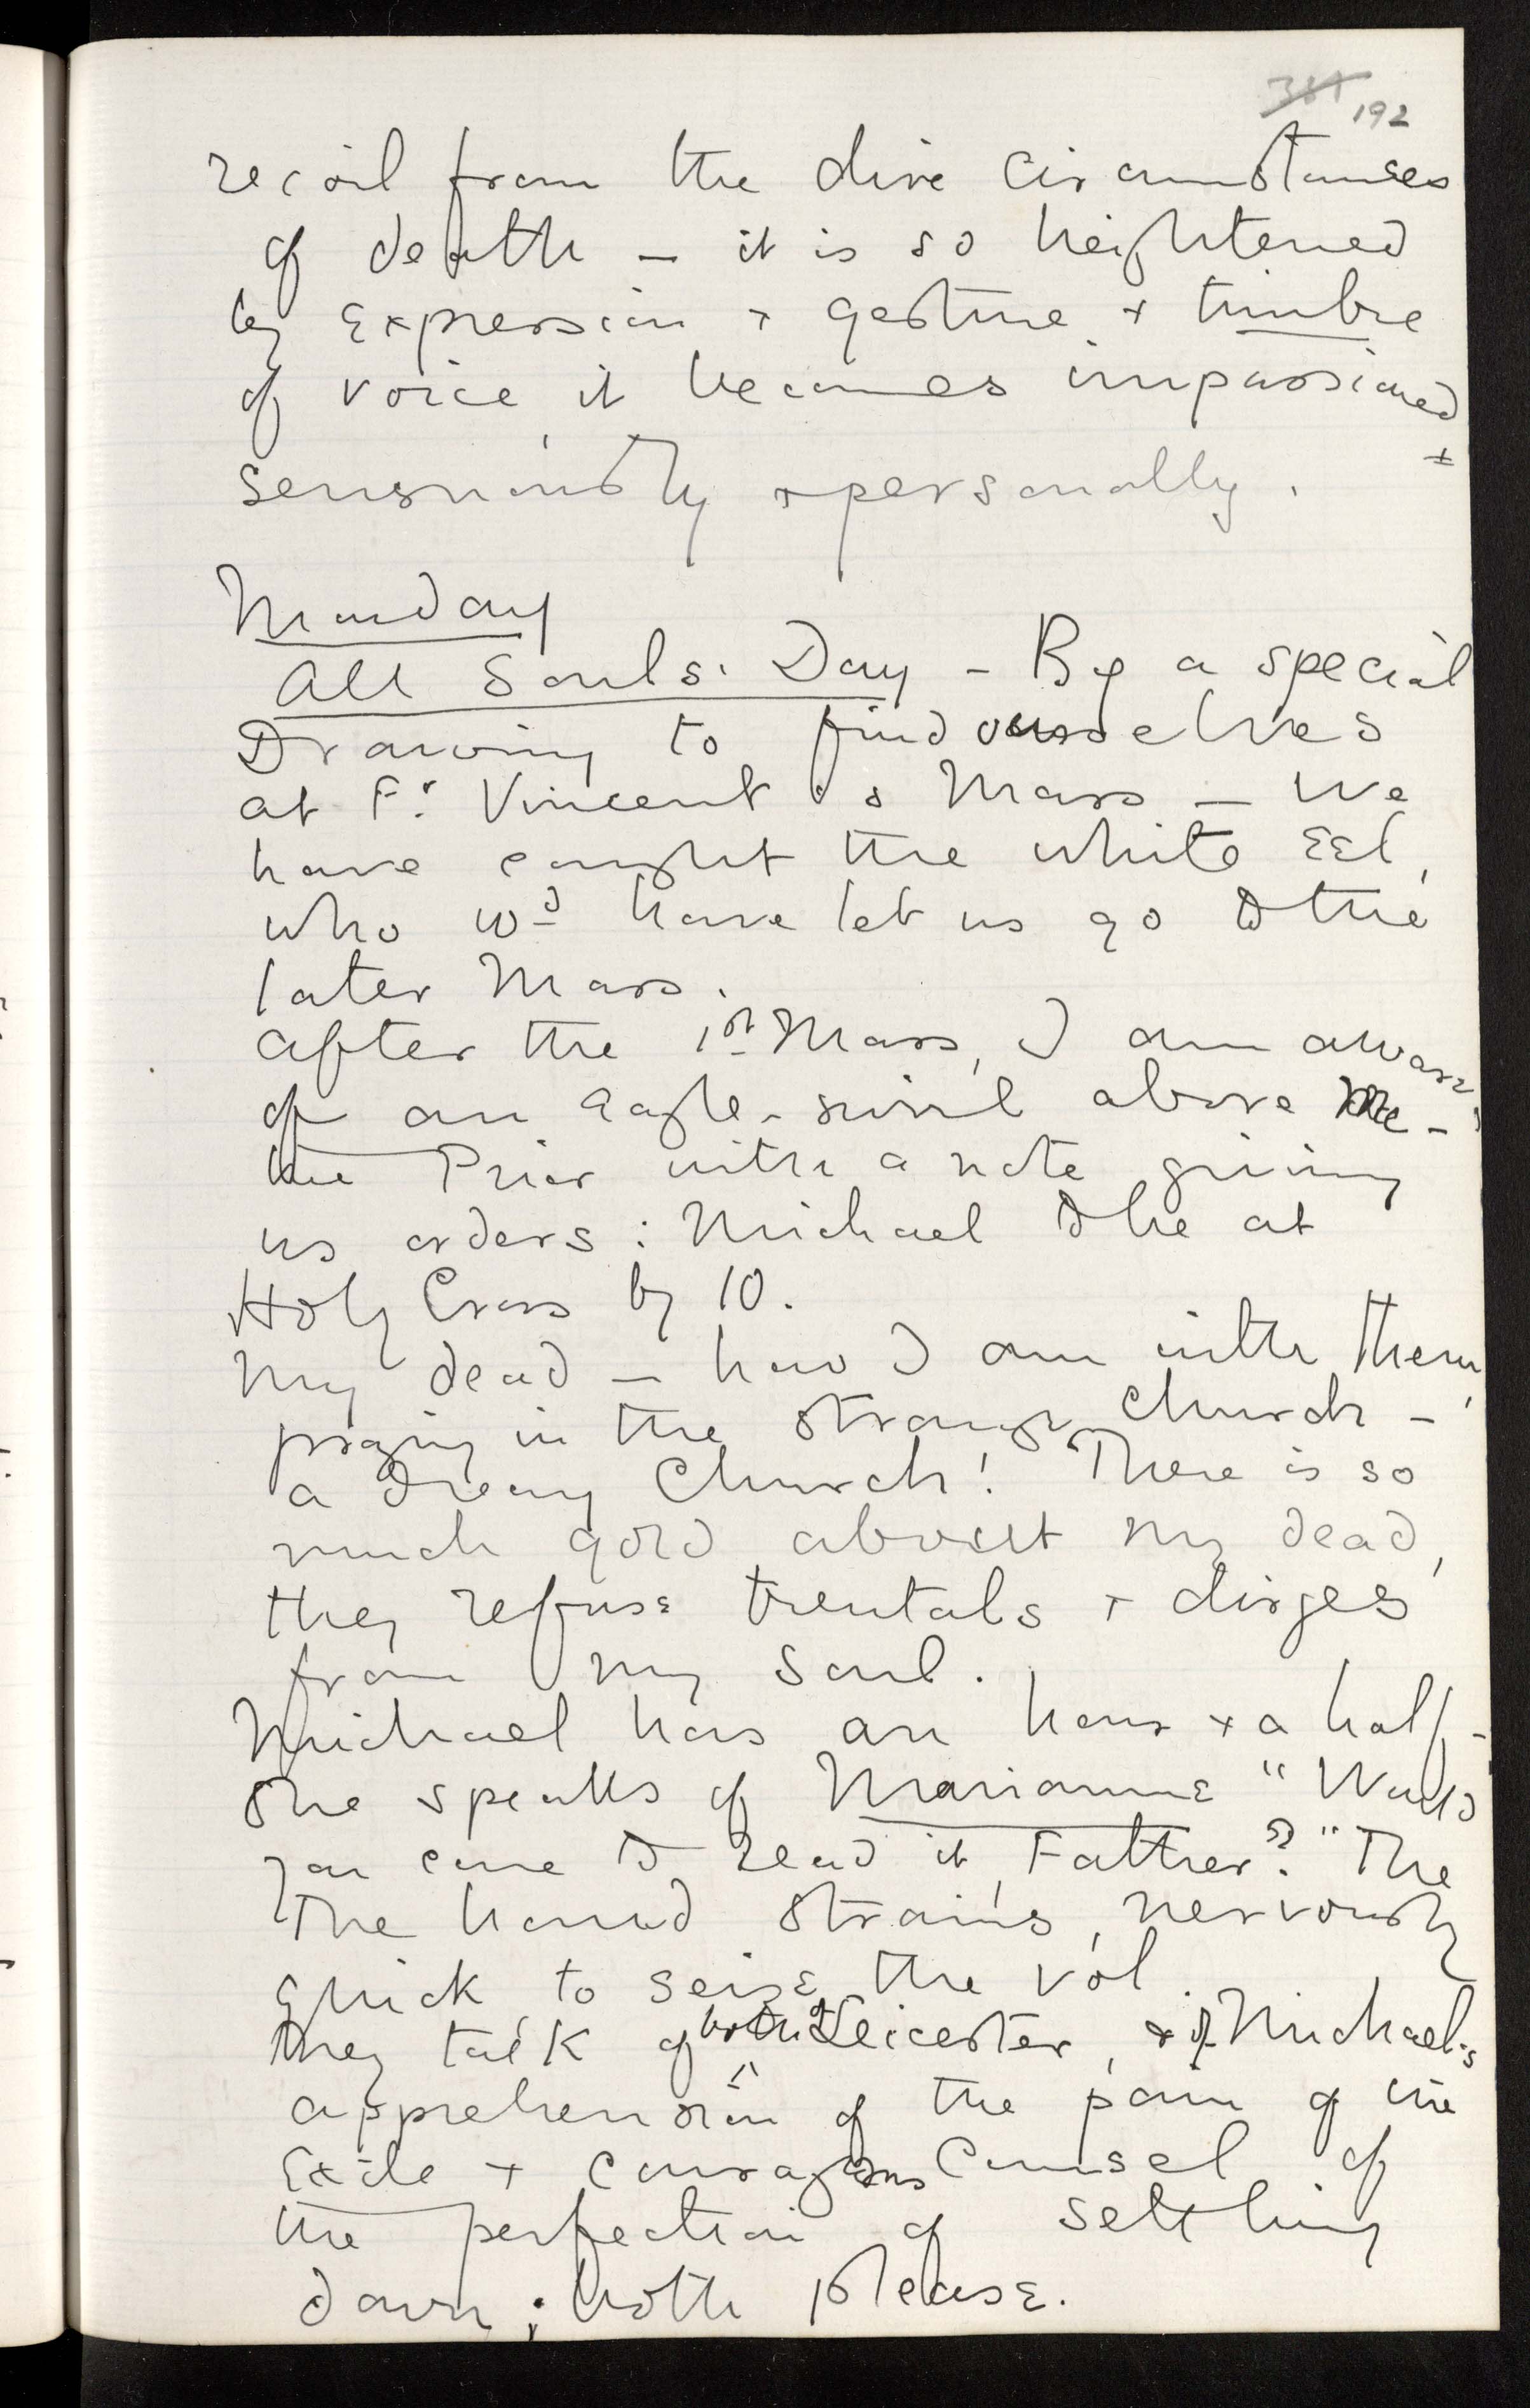 381 192
recoil from the dire circumstances
of death – it is so heightened
by expression + gesture + timbre
of voice, it becomes impassioned
+
sensuously + personally.
Monday
All Souls' Day – By a special
Drawing to find ourselves
at Fr. Vincent's Mass – We
have caught the white Eel,
who wd have let us go to the
later Mass.
After the 1st Mass, I am aware,
of an eagle-swirl above me –
the Prior with a note giving
us orders: Michael to be at
Holy Cross by 10.
My dead – how I am with them,
praying in the strange Church –
a dreary Church! There is so
much gold about my dead,
they refuse trentals + dirges
from my soul.
Michael has an hour + a half –
She speaks of Marianne "Would
you care to read it, Father?" The
The hand strains, nervously
quick to seize the vol.
They talk of both of Leicester, + of Michael's
apprehension of the pain of the
Exile + courageous Counsel of
the perfection of settling
down; both please.